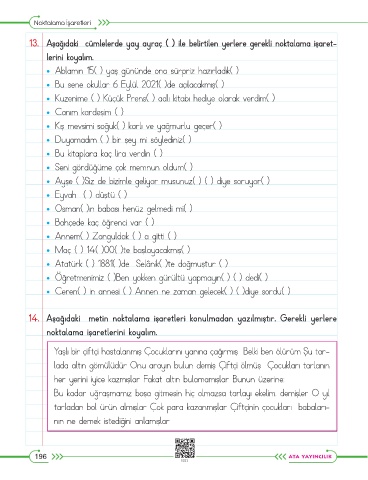 Noktalama İşaretleri
13. Aşağıdaki cümlelerde yay ayraç ( ) ile belirtilen yerlere gerekli noktalama işaret-
lerini koyalım.
• Ablamın 15( ) yaş gününde ona sürpriz hazırladık( )
• Bu sene okullar 6 Eylül 2021( )de açılacakmış( )
• Kuzenime ( ) Küçük Prens( ) adlı kitabı hediye olarak verdim( )
• Canım kardeşim ( )
• Kış mevsimi soğuk( ) karlı ve yağmurlu geçer( )
• Duyamadım ( ) bir şey mi söylediniz( )
• Bu kitaplara kaç lira verdin ( )
• Seni gördüğüme çok memnun oldum( )
• Ayşe ( )Siz de bizimle geliyor musunuz( ) ( ) diye soruyor( )
• Eyvah ( ) düştü ( )
• Osman( )ın babası henüz gelmedi mi( )
• Bahçede kaç öğrenci var ( )
• Annem( ) Zonguldak ( ) a gitti ( )
• Maç ( ) 14( )00( )te başlayacakmış( )
• Atatürk ( ) 1881( )de Selânik( )te doğmuştur ( )
• Öğretmenimiz ( )Ben yokken gürültü yapmayın( ) ( ) dedi( )
• Ceren( ) in annesi ( ) Annen ne zaman gelecek( ) ( )diye sordu( )
14. Aşağıdaki metin noktalama işaretleri konulmadan yazılmıştır. Gerekli yerlere
noktalama işaretlerini koyalım.
Yaşlı bir çiftçi hastalanmış Çocuklarını yanına çağırmış Belki ben ölürüm Şu tar-
lada altın gömülüdür Onu arayın bulun demiş Çiftçi ölmüş Çocukları tarlanın
her yerini iyice kazmışlar Fakat altın bulamamışlar Bunun üzerine
Bu kadar uğraşmamız boşa gitmesin hiç olmazsa tarlayı ekelim demişler O yıl
tarladan bol ürün almışlar Çok para kazanmışlar Çiftçinin çocukları babaları-
nın ne demek istediğini anlamışlar
196
ATA YAYINCILIK